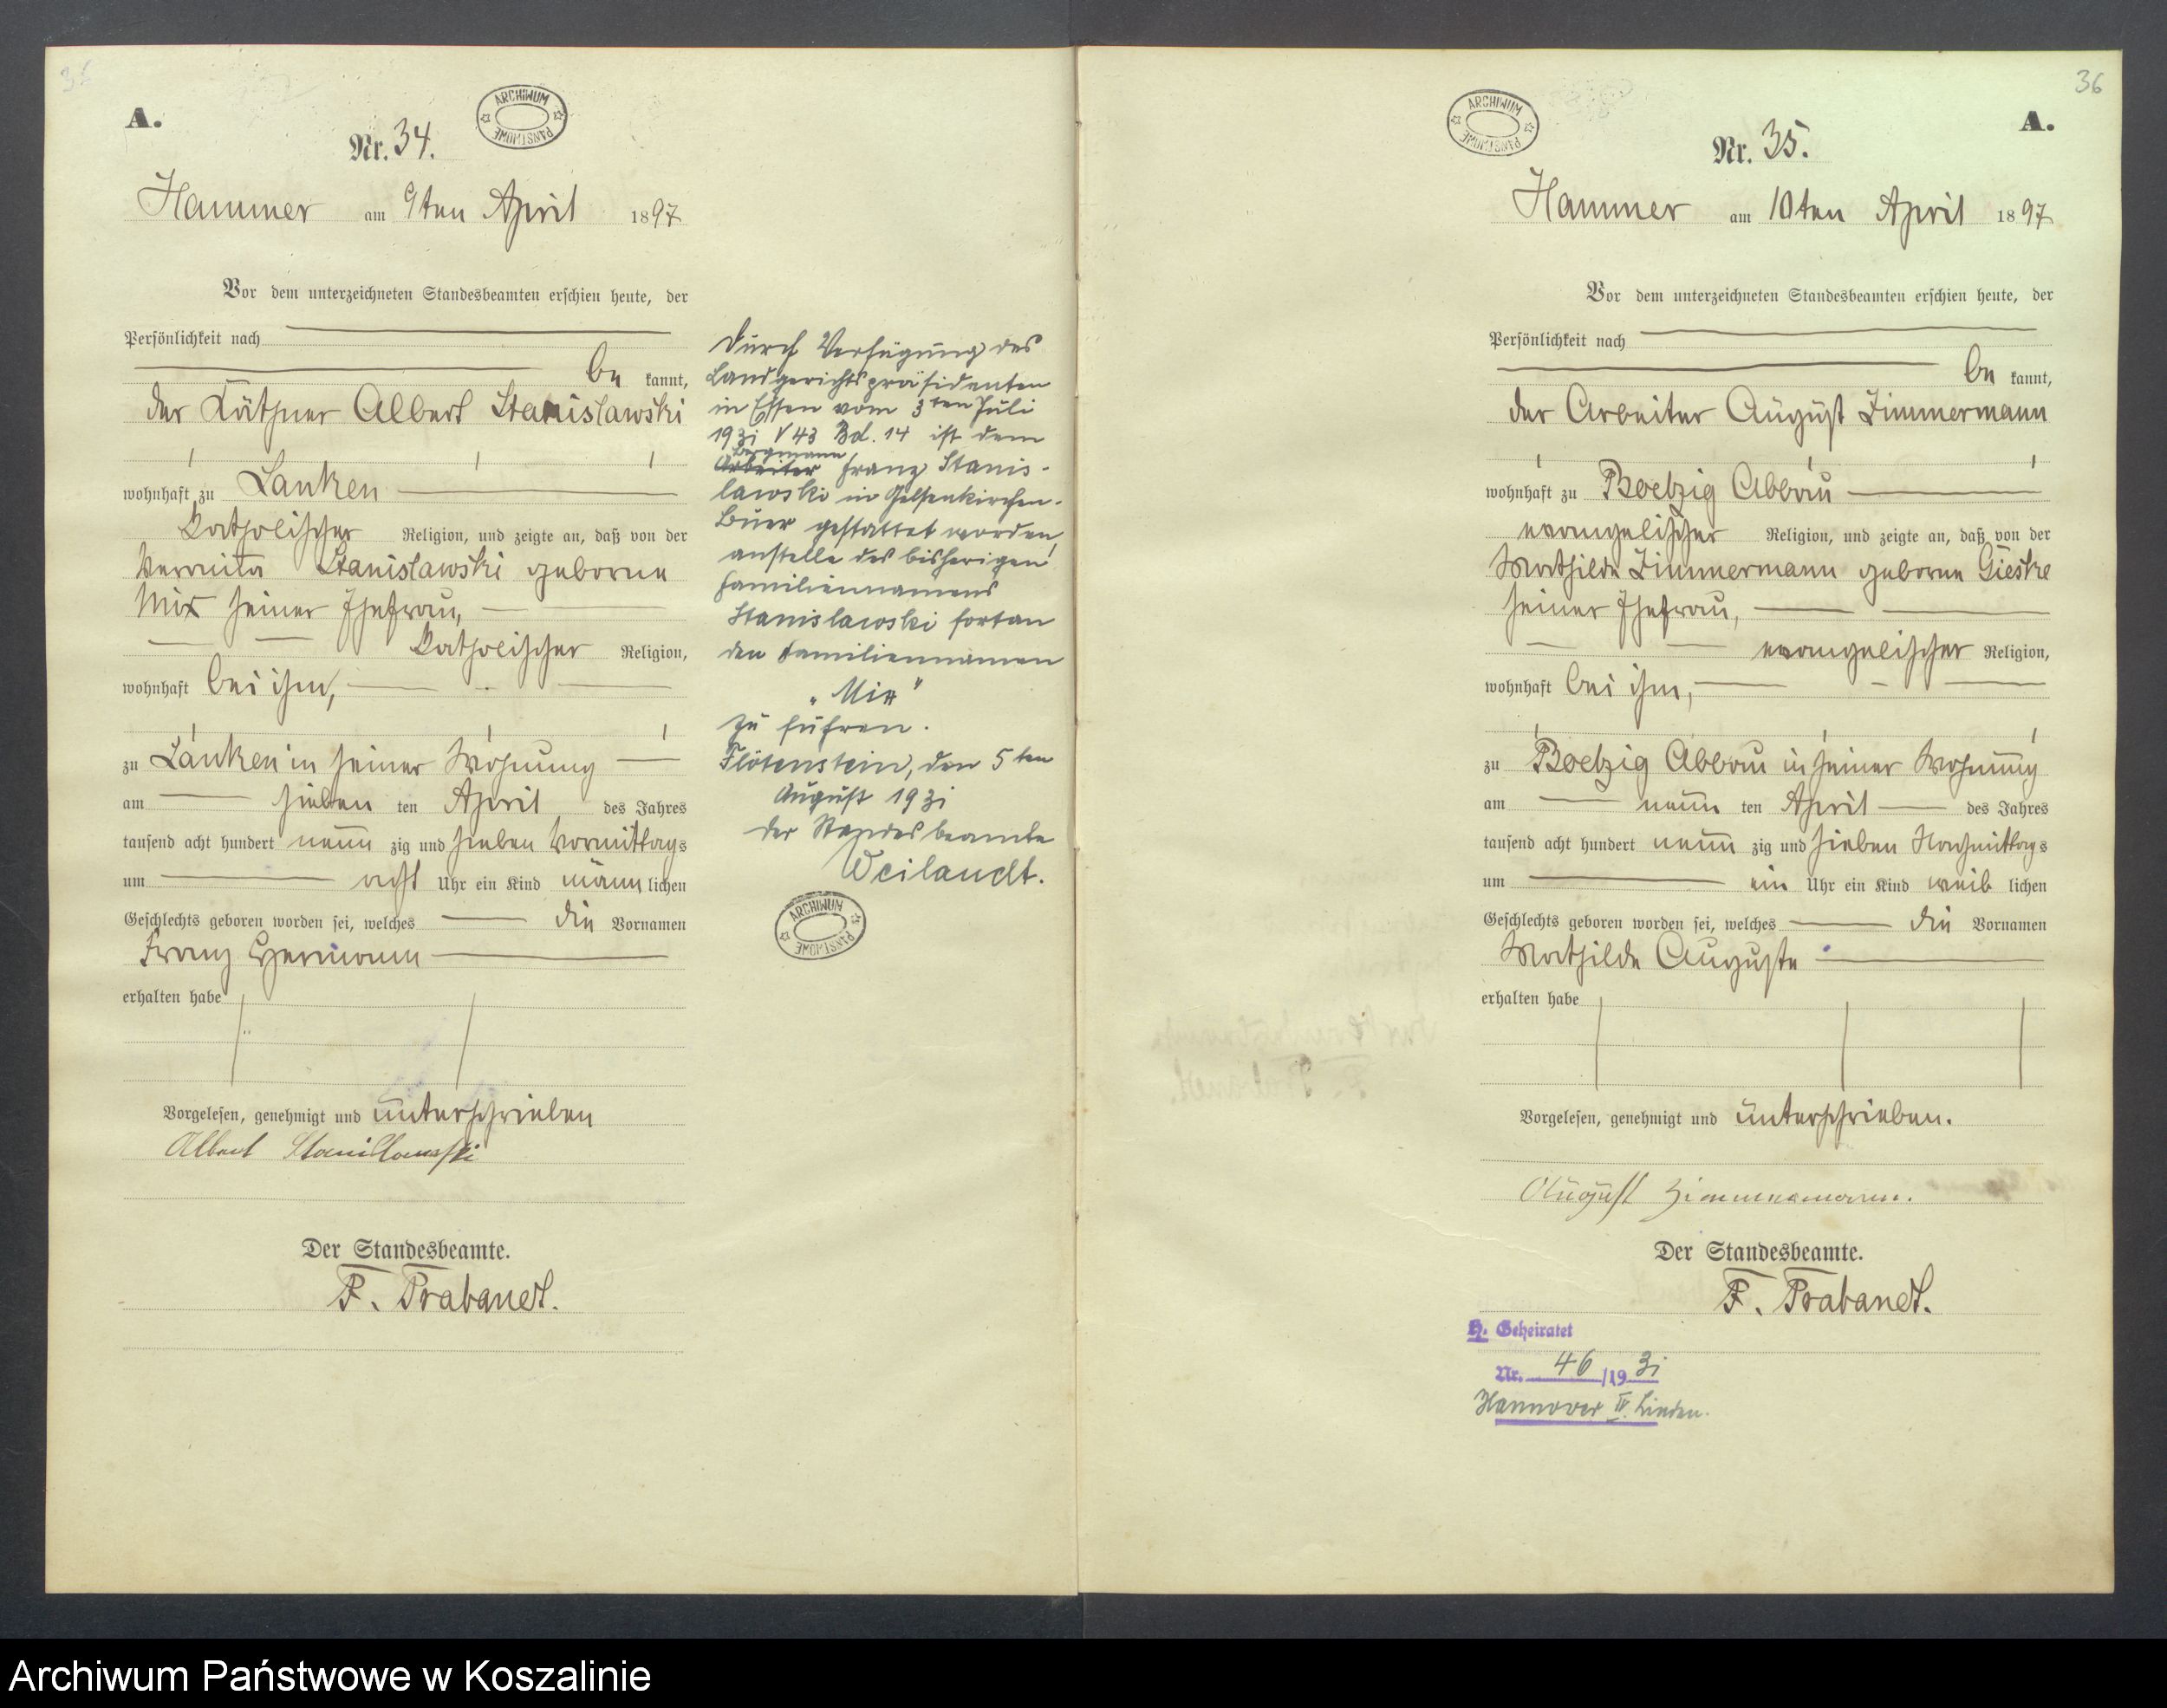 A.
ARCHIWUM PAŃSTWOWE
Nr. 34.
Hammer am 9ten April 1897
Vor dem unterzeichneten Standesbeamten erschien heute, der
Persönlichkeit nach
be kannt,
der Käthner Albert Stanislawski
wohnhaft zu Lanken
katholischer Religion, und zeigte an, daß von der
Stanislawski geborne
Mix seiner Ehefrau,
katholischer Religion,
wohnhaft bei ihm,
zu Lanken in seiner Wohnung
am sieben ten April des Jahres
tausend acht hundert neun zig und sieben Vormittags
um acht Uhr ein Kind männ lichen
Geschlechts geboren worden sei, welches die Vornamen
Franz Hermann
erhalten habe
Vorgelesen, genehmigt und unterschrieben
Albert Stanislawski
Der Standesbeamte.
F. Prabandt.
Durch Verfügung des
Landgerichtspräsidenten
in Essen vom 3ten Juli
1931 V 43 Bd. 14 ist dem
Bergmann
Arbeiter Franz Stanis-
lawski in Gelsenkirchen-
Buer gestattet worden,
anstelle des bisherigen
Familiennamens
Stanislawski fortan
den Familiennamen
„Mix"
zu führen.
Flötenstein, den 5ten
August 1931
Der Standesbeamte
Weilandt.
ARCHIWUM PAŃSTWOWE
36
A.
ARCHIWUM PAŃSTWOWE
Nr. 35.
Hammer am 10ten April 1897
Vor dem unterzeichneten Standesbeamten erschien heute, der
Persönlichkeit nach
be kannt,
der Arbeiter August Zimmermann
wohnhaft zu Boelzig Abbau
evangelischer Religion, und zeigte an, daß von der
Mathilde Zimmermann geborne Gieske
seiner Ehefrau,
evangelischer Religion,
wohnhaft bei ihm,
zu Boelzig Abbau in seiner Wohnung
am neun ten April des Jahres
tausend acht hundert neun zig und sieben Nachmittags
um ein Uhr ein Kind weib lichen
Geschlechts geboren worden sei, welches die Vornamen
Mathilde Auguste
erhalten habe
Vorgelesen, genehmigt und unterschrieben.
August Zimmermann.
Der Standesbeamte.
F. Prabandt.
H. Geheiratet
Nr. 46/1931
Hannover IV. Linden.
Archiwum Państwowe w Koszalinie